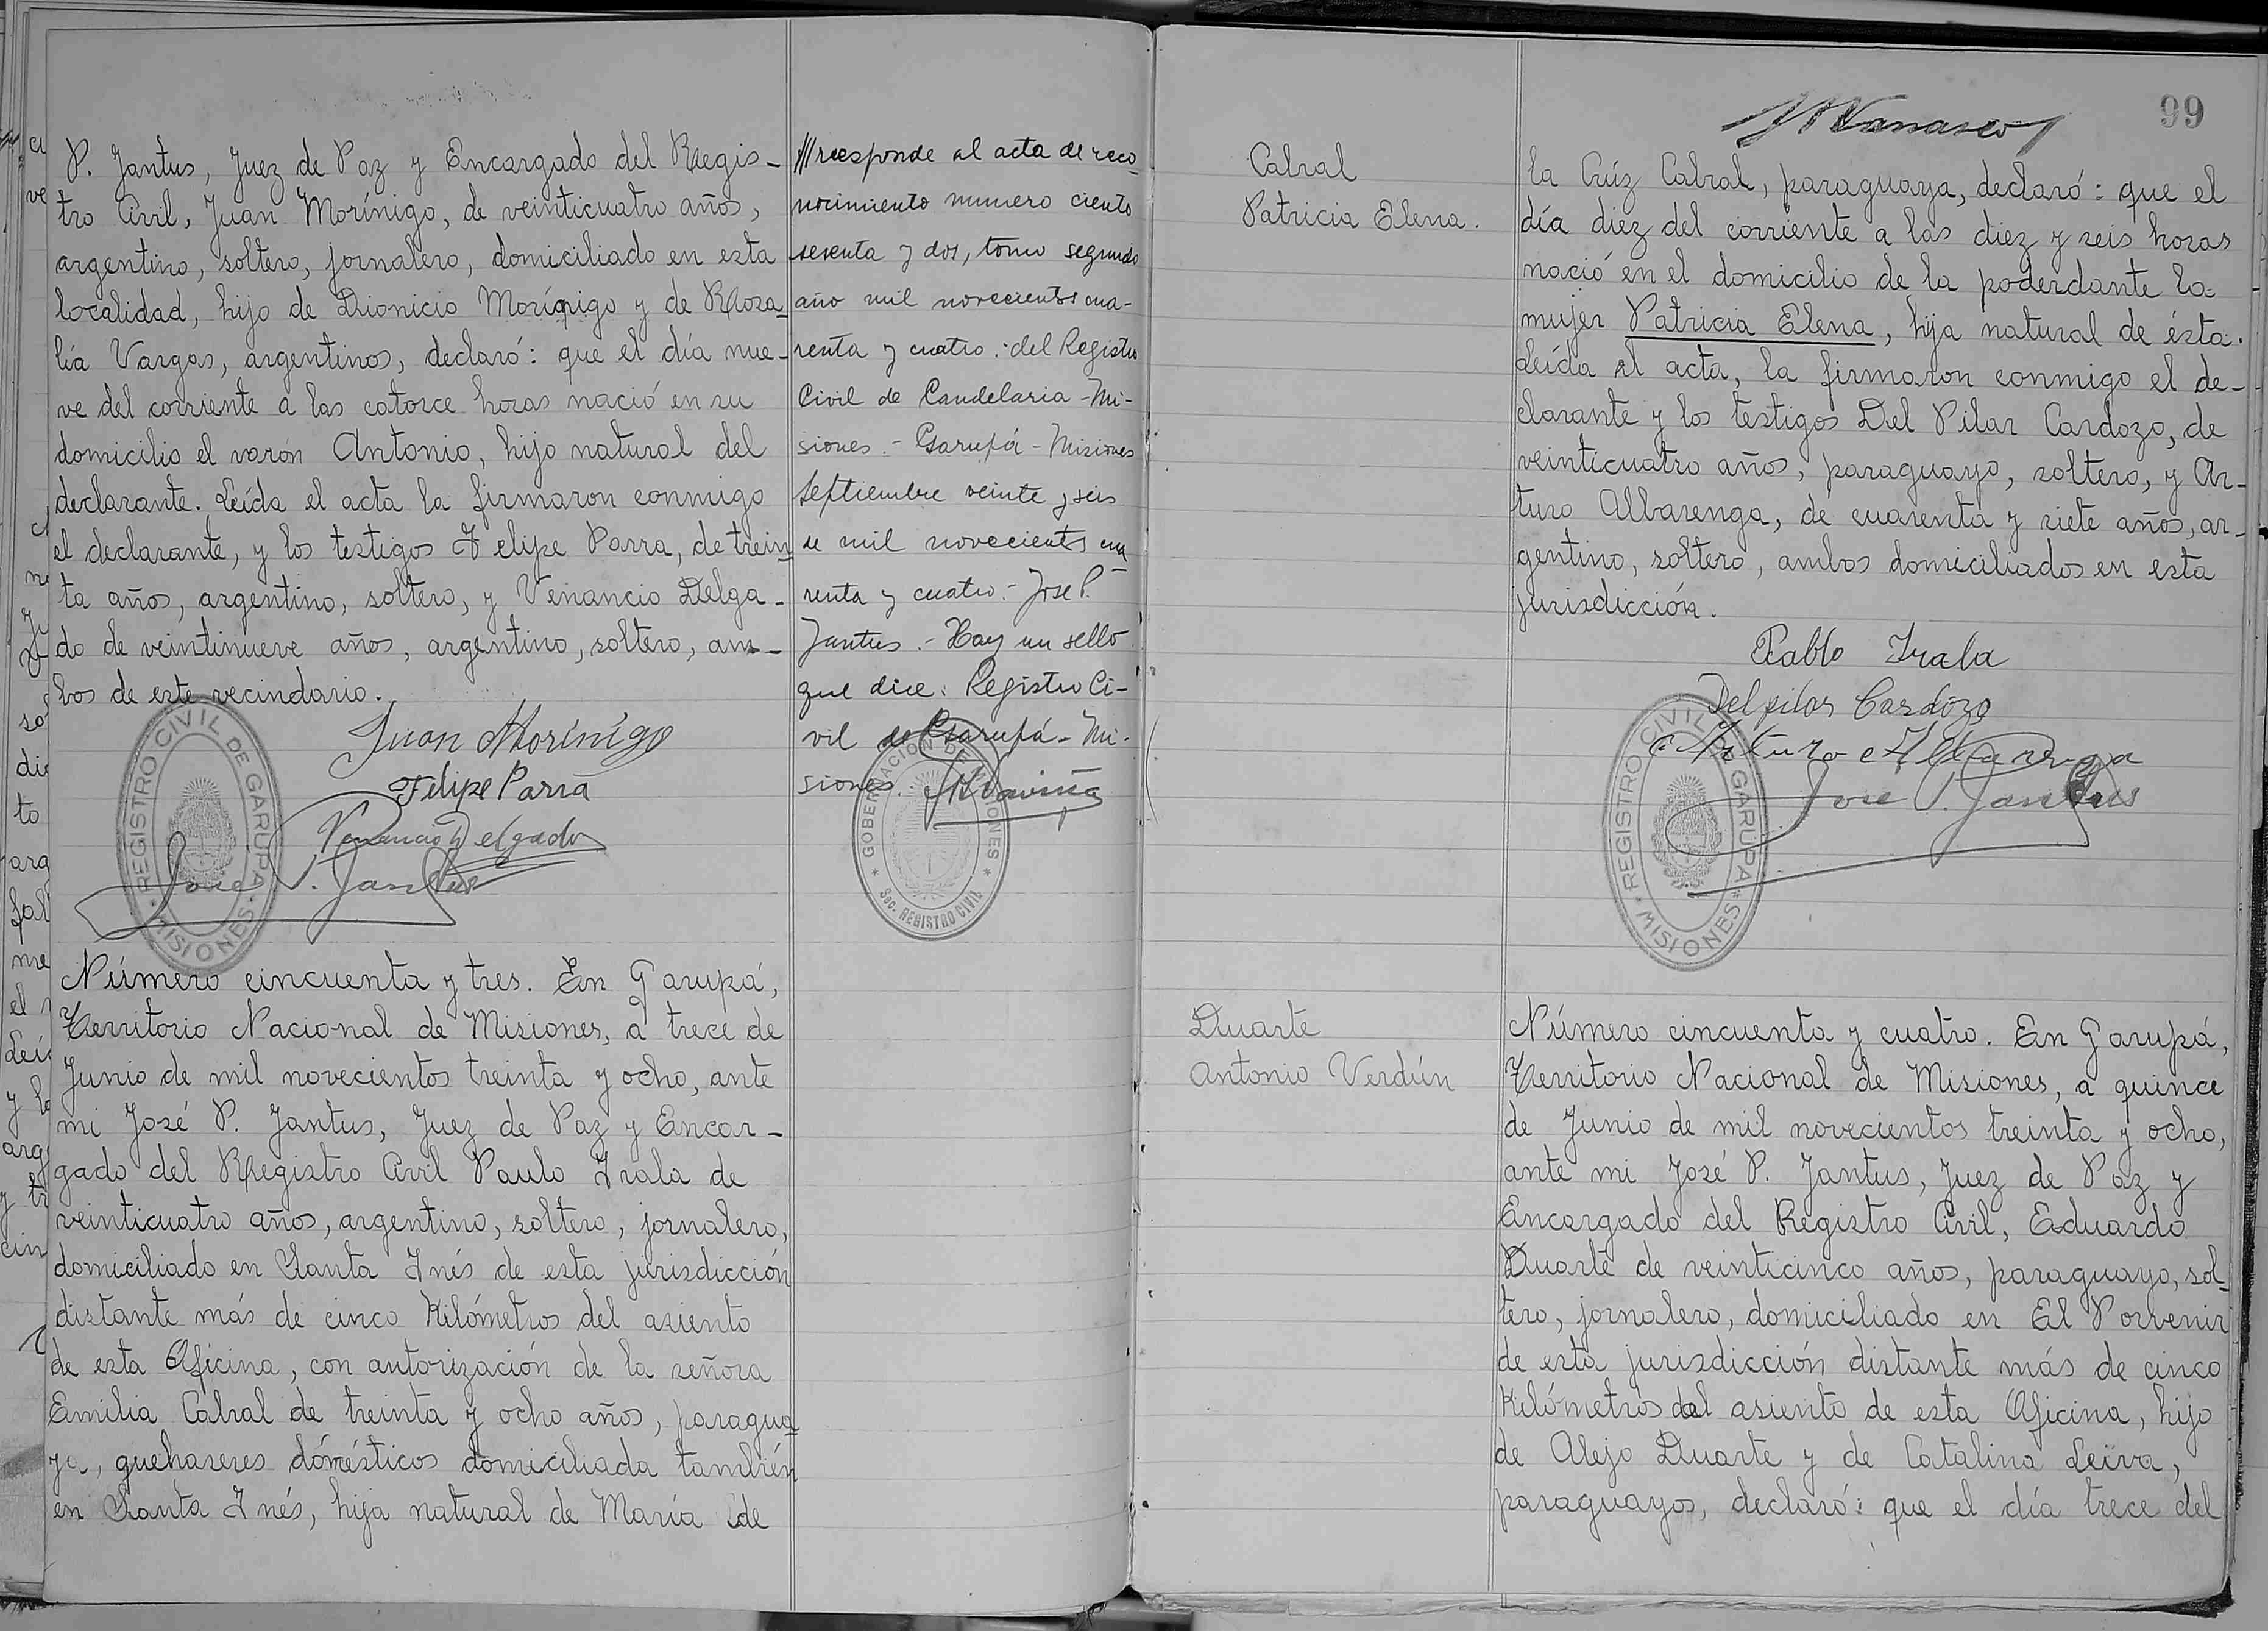 P. Jantus, Juez de Paz y Encargado del Regis-
tro Civil, Juan Morínigo, de veinticuatro años,
argentino, soltero, jornalero, domiciliado en esta
localidad, hijo de Dionicio Morínigo y de Rosa-
lía Vargas, argentinos, declaró: que el día nue-
ve del corriente a las catorce horas nació en su
domicilio el varón Antonio, hijo natural del
declarante. Leída el acta la firmaron conmigo
el declarante, y los testigos Felipe Parra, de trein-
ta años, argentino, soltero, y Venancio Delga-
do de veintinueve años, argentino, soltero, am-
bos de este vecindario.
Juan Morínigo
Felipe Parra
Venancio Delgado
Jose P. Jantus
REGISTRO CIVIL DE GARUPA
* MISIONES *
Número cincuenta y tres. En Garupá,
Territorio Nacional de Misiones, a trece de
Junio de mil novecientos treinta y ocho, ante
mi José P. Jantus, Juez de Paz y Encar-
gado del Registro Civil Paulo Irala de
veinticuatro años, argentino, soltero, jornalero,
domiciliado en Santa Inés de esta jurisdicción
distante más de cinco Kilómetros del asiento
de esta Oficina, con autorización de la señora
Emilia Cabral de treinta y ocho años, paragua-
ya, quehaseres domésticos domiciliada también
en Santa Inés, hija natural de María de
///rresponde al acta de reco-
nocimiento numero ciento
sesenta y dos, tomo segundo
año mil novecientos cua-
renta y cuatro.- del Registro
Civil de Candelaria - Mi-
siones.- Garupá - Misiones
Septiembre veinte y seis
de mil novecientos cua-
renta y cuatro.- Jose P.
Jantus.- Hay un sello
que dice: Registro Ci-
vil de Garupá - Mi-
siones.
GOBERNACION DE MISIONES
* Sec. REGISTRO CIVIL *
99
Cabral
Patricia Elena.
la Crúz Cabral, paraguaya, declaró: que el
día diez del corriente a las diez y seis horas
nació en el domicilio de la poderdante la
mujer Patricia Elena, hija natural de ésta.
Leída el acta, la firmaron conmigo el de-
clarante y los testigos Del Pilar Cardozo, de
veinticuatro años, paraguayo, soltero, y Ar-
turo Albarenga, de cuarenta y siete años, ar-
gentino, soltero, ambos domiciliados en esta
jurisdicción.
Pablo Irala
Del pilar Cardozo
Arturo Albarenga
Jose P. Jantus
REGISTRO CIVIL DE GARUPA
* MISIONES *
Duarte
Antonio Verdún
Número cincuenta y cuatro. En Garupá,
Territorio Nacional de Misiones, a quince
de Junio de mil novecientos treinta y ocho,
ante mi José P. Jantus, Juez de Paz y
Encargado del Registro Civil, Eduardo
Duarte de veinticinco años, paraguayo, sol-
tero, jornalero, domiciliado en El Porvenir
de esta jurisdicción distante más de cinco
Kilómetros del asiento de esta Oficina, hijo
de Alejo Duarte y de Catalina Leiva,
paraguayos, declaró: que el día trece del